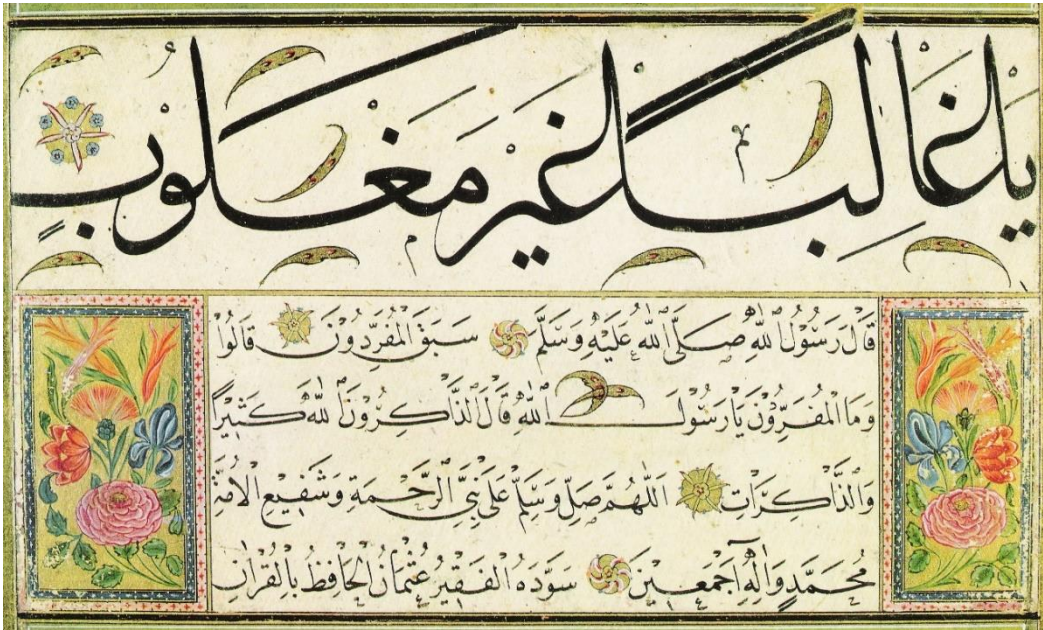 يَا غَالِبًا غَيْرَ مَغْلُوبٍ
قَالَ رَسُولُ اللهِ صَلَّى اللهُ عَلَيْهِ وَسَلَّمَ سَبَقَ الْمُفَرِّدُونَ قَالُوا
وَمَا الْمُفَرِّدُونَ يَا رَسُولَ اللهِ قَالَ الذَّاكِرُونَ اللهَ كَثِيرًا
وَالذَّاكِرَاتِ اَللّٰهُمَّ صَلِّ وَسَلِّمْ عَلَى نَبِيِّ الرَّحْمَةِ وَشَفِيعِ الْاُمَّةِ
مُحَمَّدٍ وَاٰلِهِ اَجْمَعِينَ سَوَّدَهُ الْفَقِيرُ عُثْمَانُ الْحَافِظُ بِالْقُرْاٰنِ